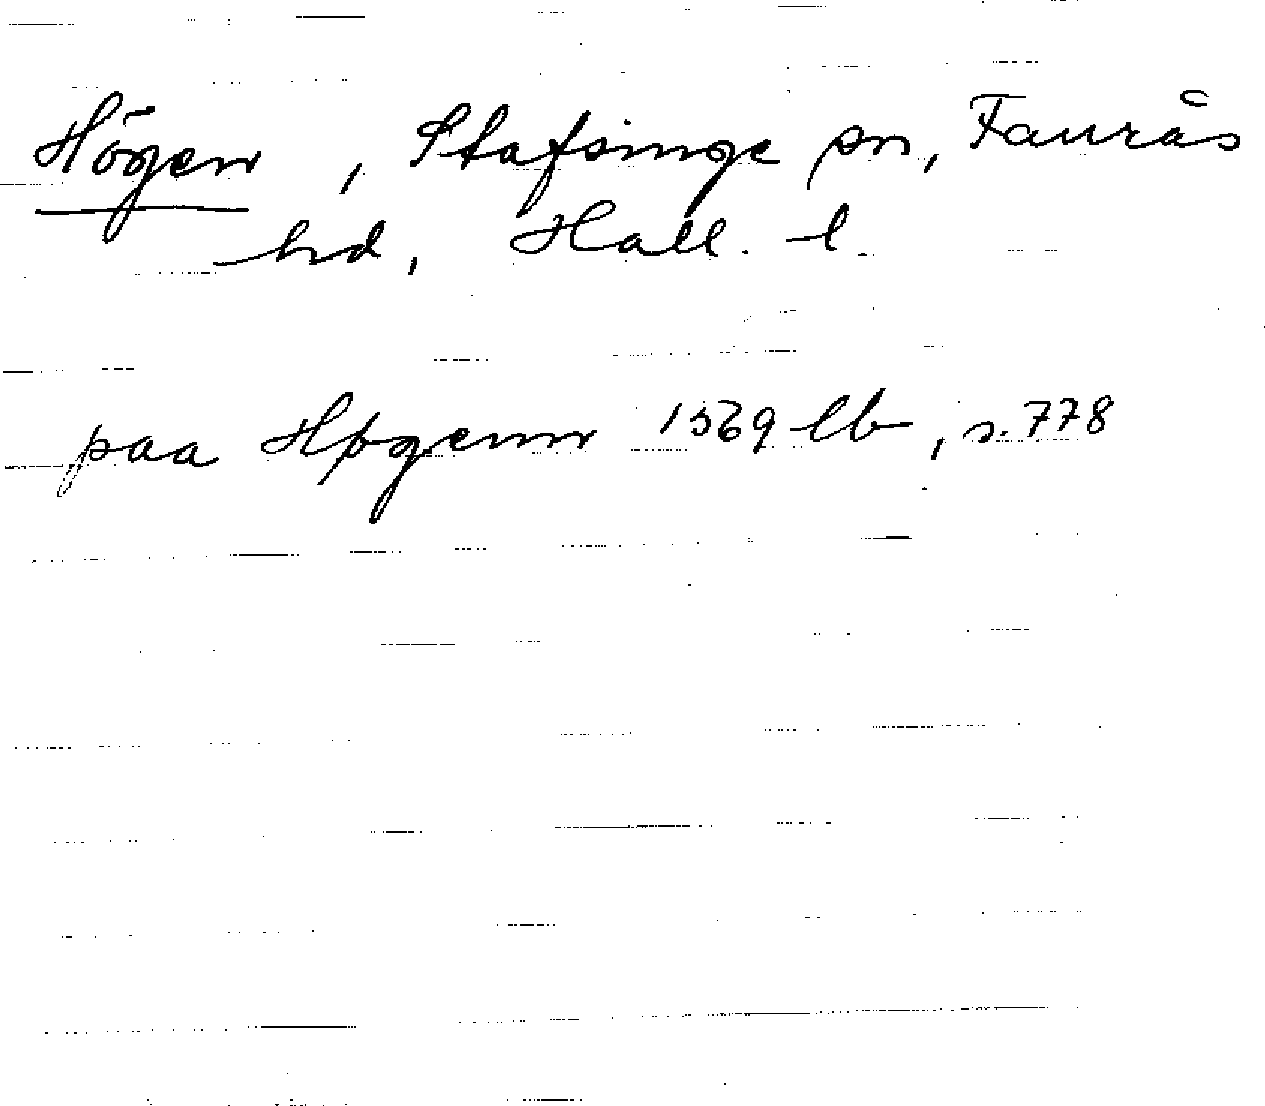 Högen, Stafsinge sn, Faurås
hd, Hall. l.
paa Høgenn 1569 lb, s. 778